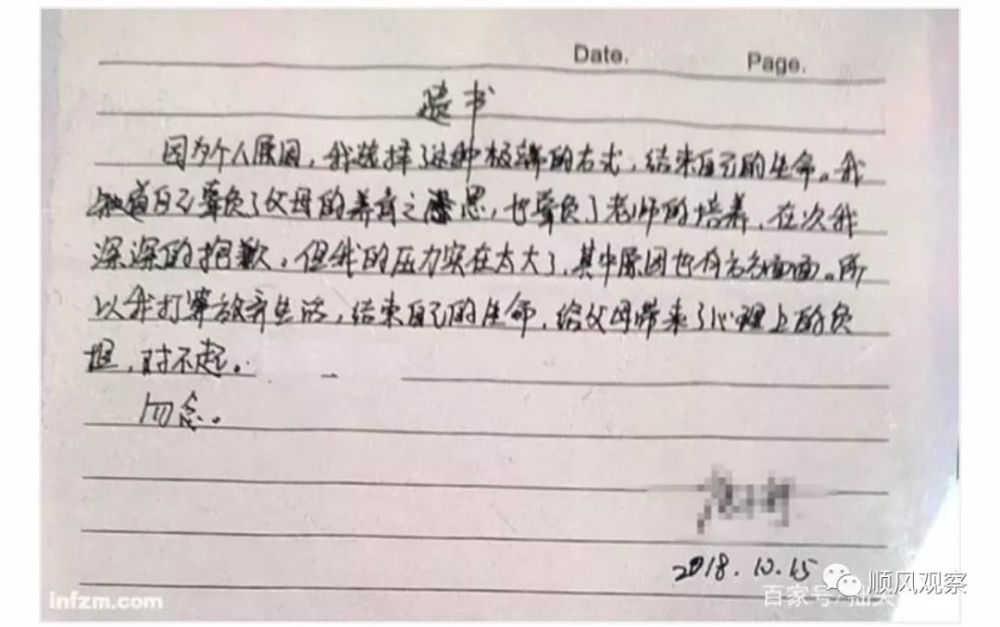 Date.
Page.
遗书
因为个人原因，我选择了这种极端的方式，结束自己的生命。我
知道自己辜负了父母的养育之恩，也辜负了老师的培养，在次我
深深的抱歉，但我的压力实在太大了，其中原因也有方方面面。所
以我打算放弃生活，结束自己的生命，给父母带来了心理上的负
担，对不起。
勿念。
2018.10.15
infzm.com
百家号
顺风观察